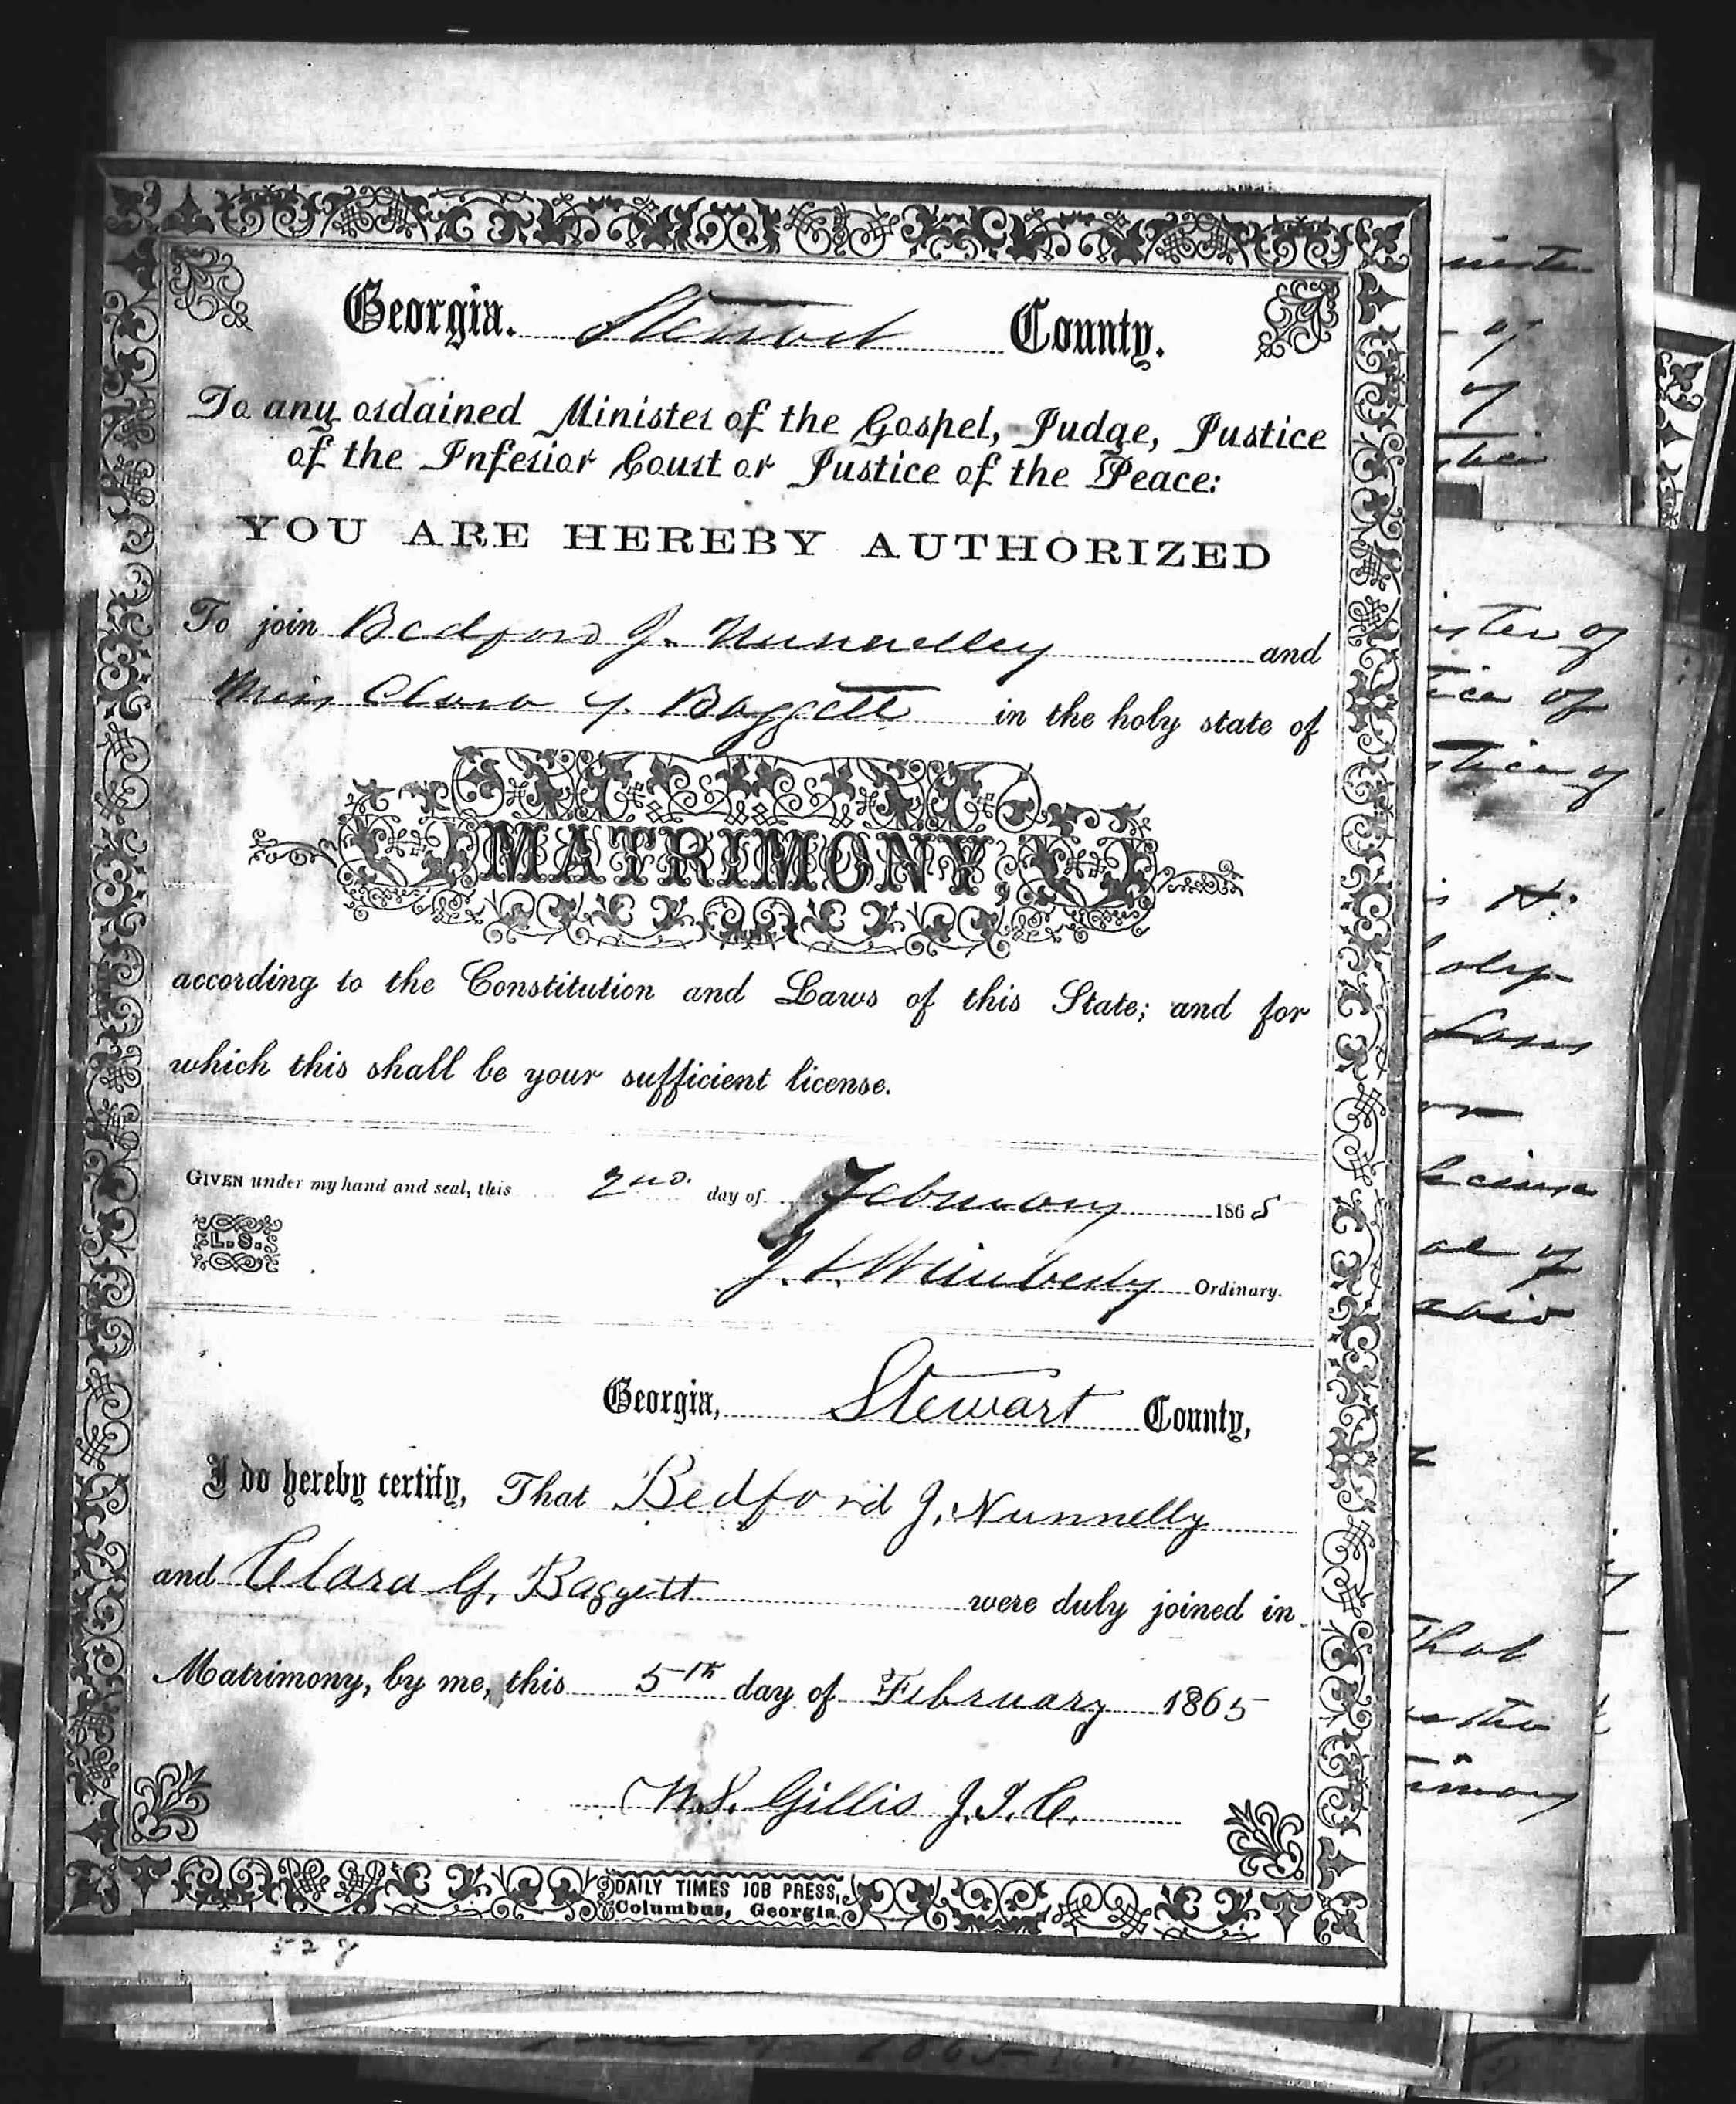 Georgia. Stewart County.
To any ordained Minister of the Gospel, Judge, Justice
of the Inferior Court or Justice of the Peace:
YOU ARE HEREBY AUTHORIZED
To join Bedford J. Nunnelley and
Miss Clara Y. Baggett in the holy state of
MATRIMONY,
according to the Constitution and Laws of this State; and for
which this shall be your sufficient license.
GIVEN under my hand and seal, this 2nd. day of February 1865
L. S.
J. L. Wimberly Ordinary.
Georgia, Stewart County,
I do hereby certify, That Bedford J. Nunnelly
and Clara Y. Baggett were duly joined in
Matrimony, by me, this 5th day of February 1865
W. S. Gillis J. I. C.
DAILY TIMES JOB PRESS,
Columbus, Georgia.
527
ister of
tice of
stice of
holy
Laws
License
That